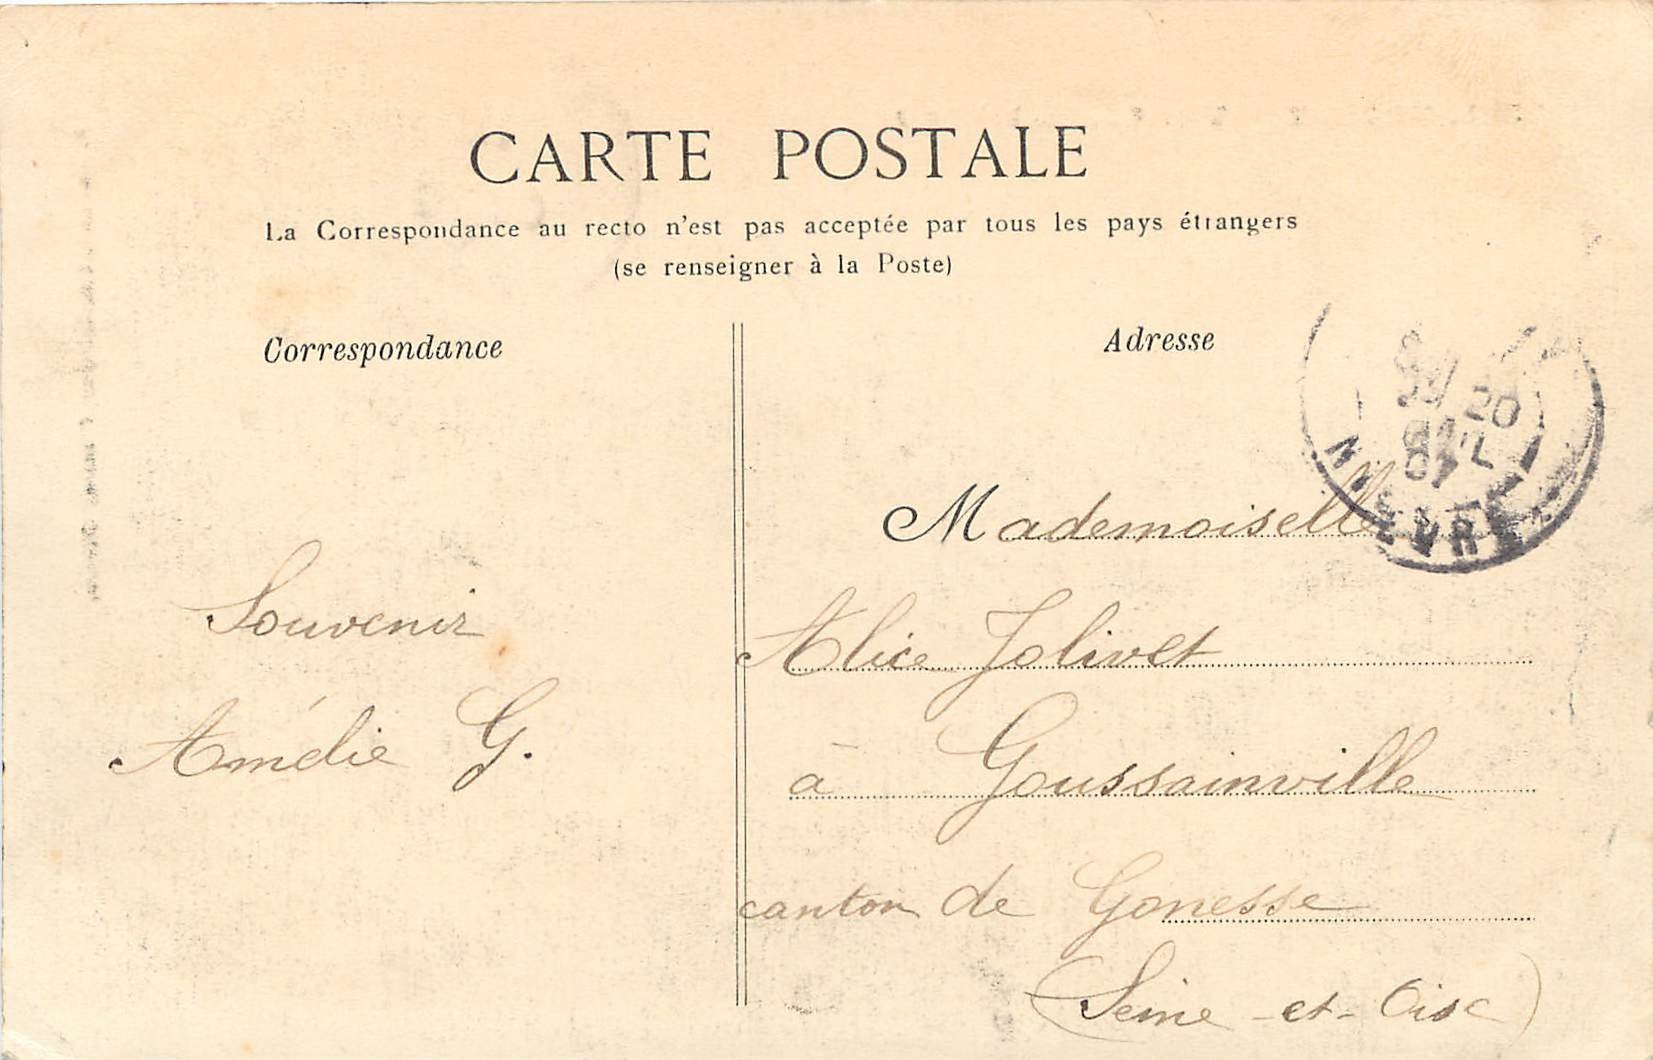 CARTE POSTALE
La Correspondance au recto n'est pas acceptée par tous les pays étrangers
(se renseigner à la Poste)
Correspondance
Souvenir
Amélie G.
Adresse
Mademoiselle
Alice Jolivet
à Goussainville
canton de Gonesse
(Seine-et-Oise)
20
07